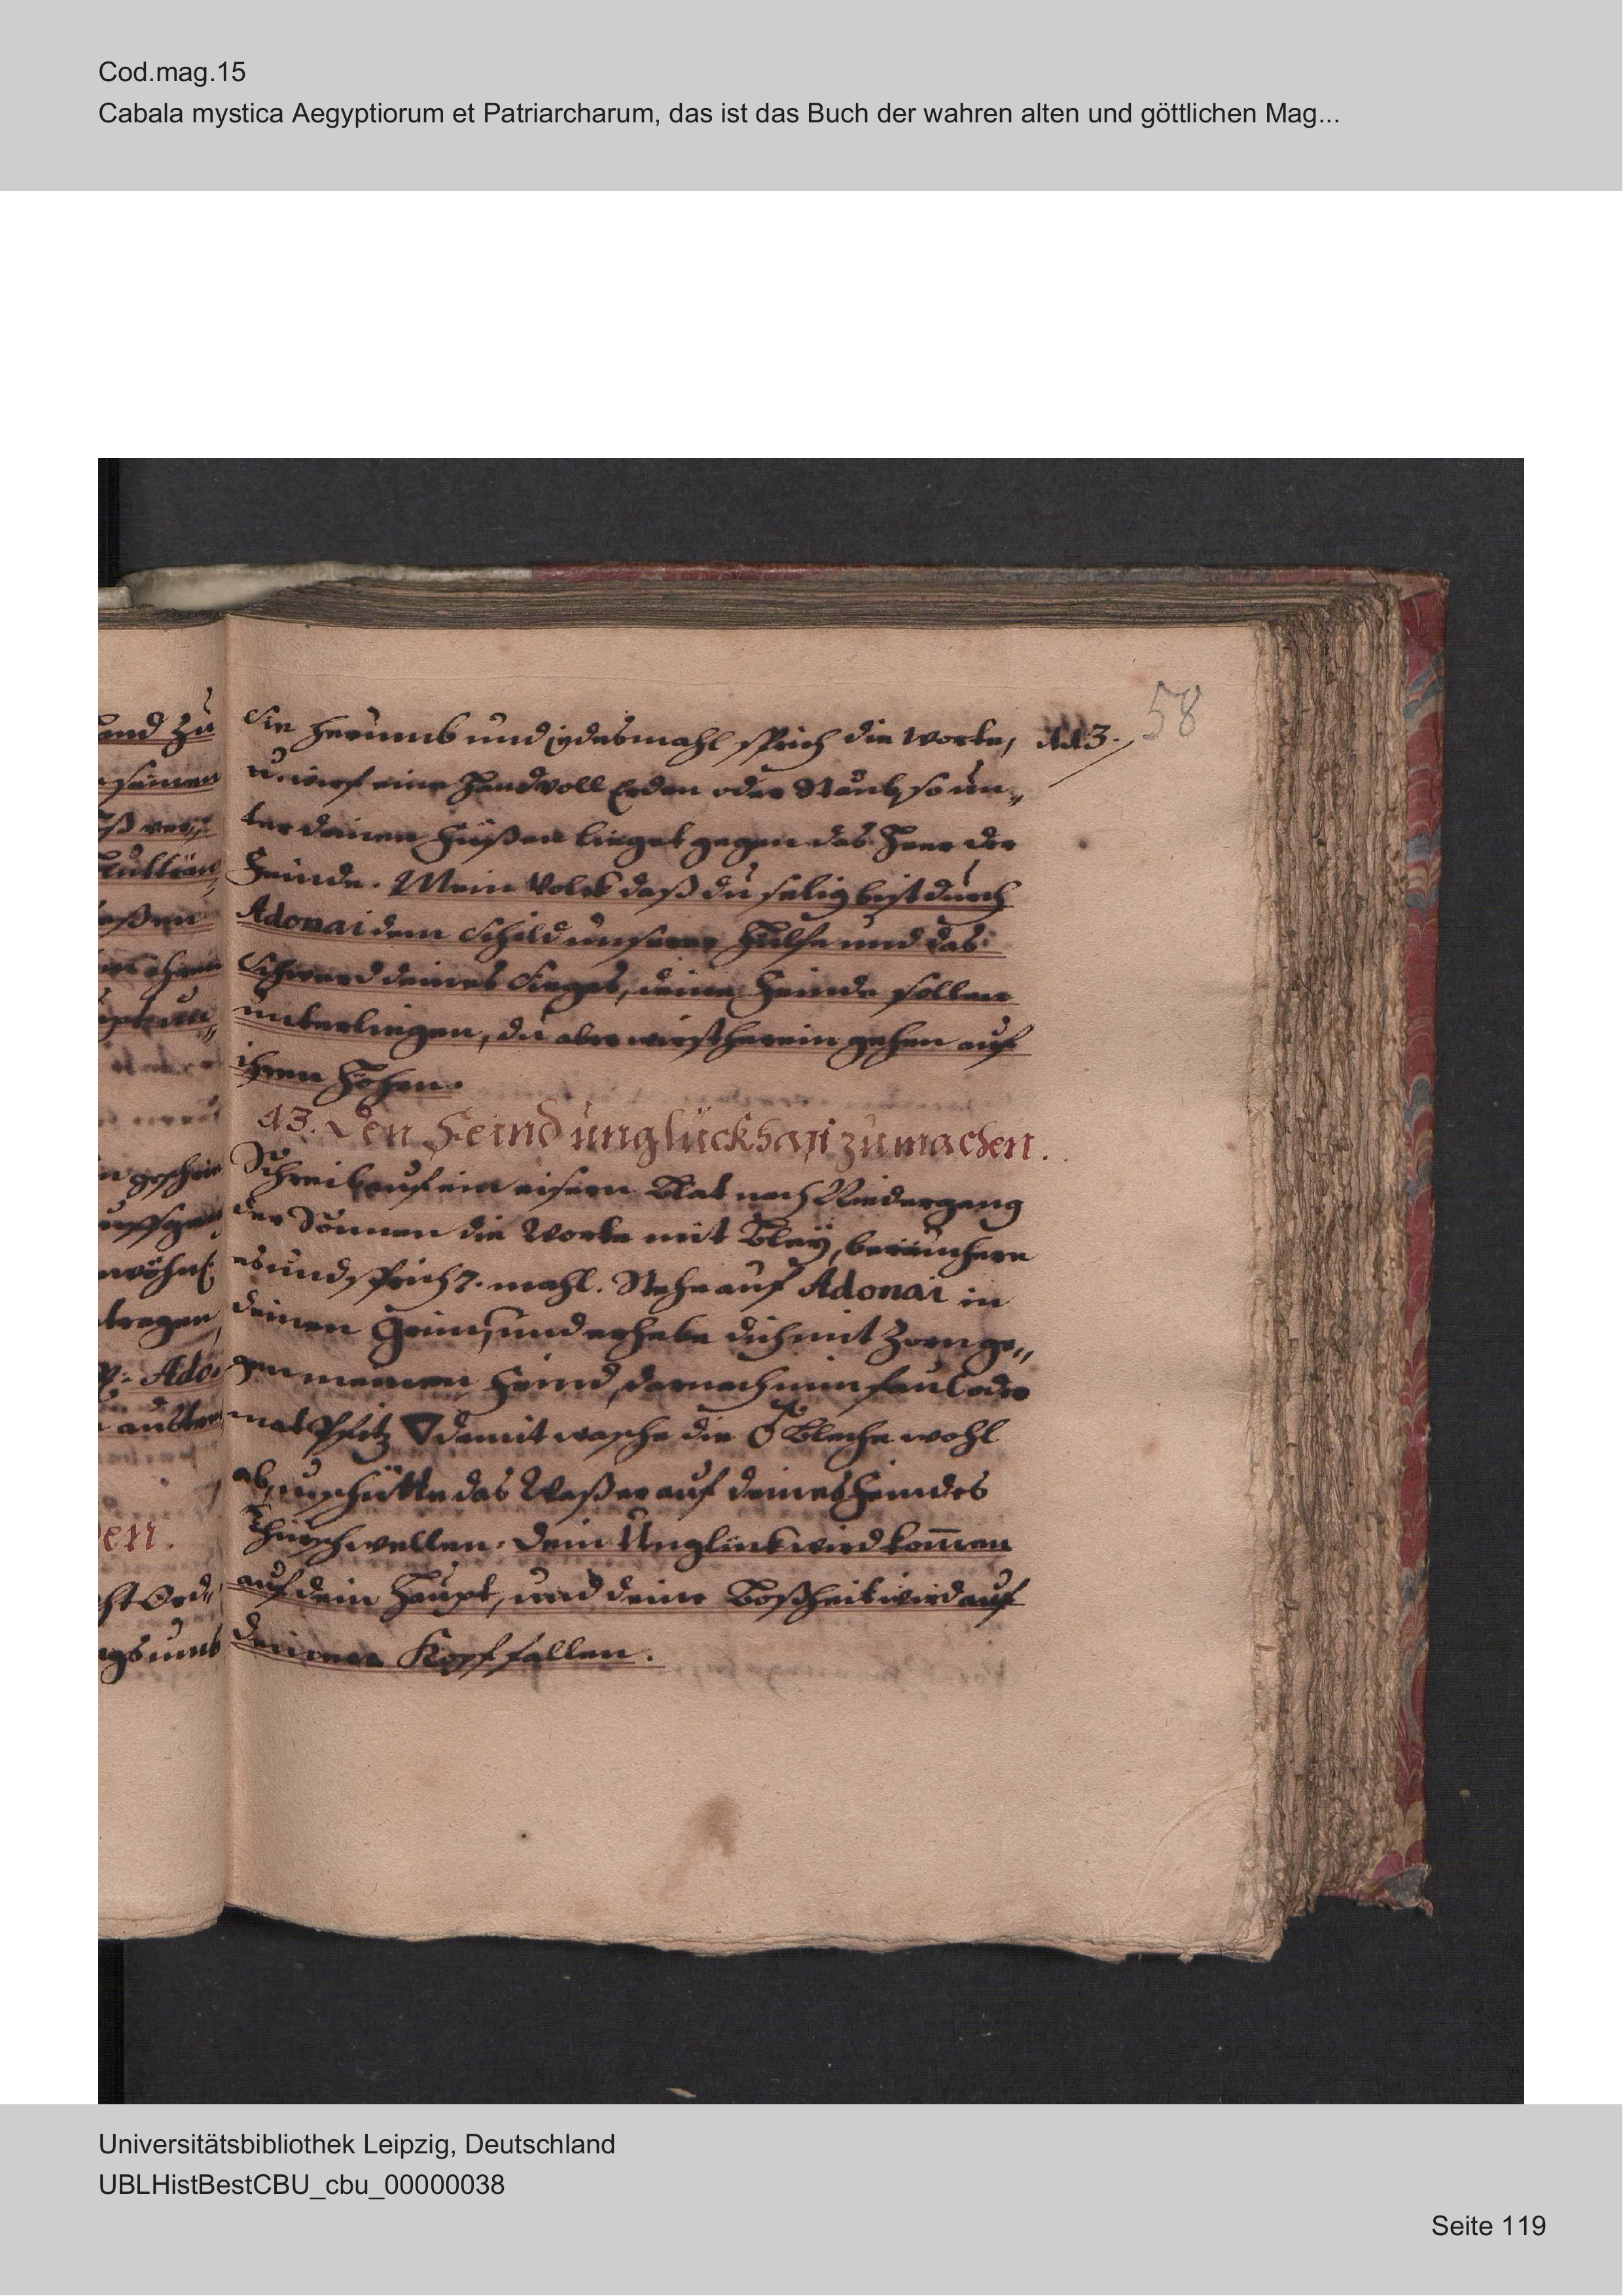 Cod.mag.15
Cabala mystica Aegyptiorum et Patriarcharum, das ist das Buch der wahren alten und göttlichen Mag...
58
Sie herumb und iedesmahl sprich die Worte, 113.
u. wirf eine Handvoll Erden oder Staub, so un„
ter deinen Füßen lieget gegen das Heer der
Feinde. Mein Volck daß du selig bist durch
Adonai dem Schild unserer Hülfe und das
Schwerd deines Sieges, deine Feinde sollen
unterliegen, du aber wirst herein gehen auf
ihren Höhen.
43. Den Feind unglückhafft zu machen.
Schreib auf ein eisern Blat nach Niedergang
der Sonnen die Worte mit Bley, beräuchere
es und sprich 7. mahl. Stehe auf Adonai in
deinen Grim, und erhebe dich mit Zorn ge„
gen meinen Feind, darnach nim faul oder
mat Pfitz ▽ damit wasche die ♂ Bleche wohl
ab, u. schütte das Waßer auf deines Feindes
Thürschwellen. Dein Unglück wird kom̅en
auf dein Haupt, und deine Boßheit wird auf
deinen Kopf fallen.
and zu
seinen
aßen
ihren
geschrie
tragen
Ado„
den.
Ord„
Universitätsbibliothek Leipzig, Deutschland
UBLHistBestCBU_cbu_00000038
Seite 119